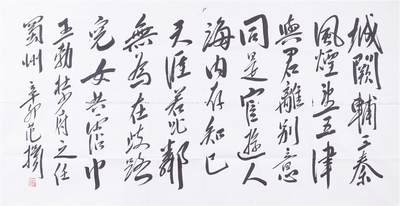 城阙輔三秦
風煙望五津
與君離别意
同是宦遊人
海内存知己
天涯若比鄰
無為在歧路
兒女共霑巾
王勃杜少府之任
蜀州